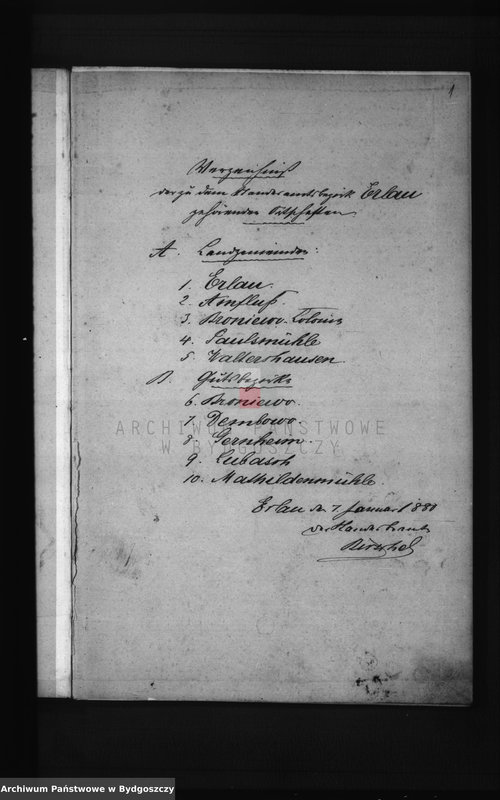 1
Verzeichniß
der zu dem Standesamtsbezirk Erlau
gehörenden Ortschaften
A. Landgemeinden:
1. Erlau.
2. Amfluß.
3. Broniewo-Colonie
4. Paulsmühle
5. Waltershausen
B. Gutsbezirke
6. Broniewo.
7. Dembowo.
8. Gernheim.
9. Lubasch
10. Mathildenmühle.
Erlau den 7. Januar 1888
Der Standesbeamte
ARCHIWUM PAŃSTWOWE
W BYDGOSZCZY
Archiwum Państwowe w Bydgoszczy